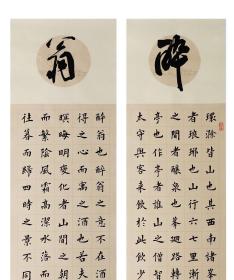 醉
環滁皆山也其西南諸峯
者琅琊也山行六七里漸
之間者釀泉也峯迴路轉
亭也作亭者誰山之僧智
太守與客來飲於此飲少
翁
醉翁也醉翁之意不在酒
得之心而寓之酒也若夫
暝晦明變化者山間之朝
而繁陰風霜高潔水落石
往暮而歸四時之景不同